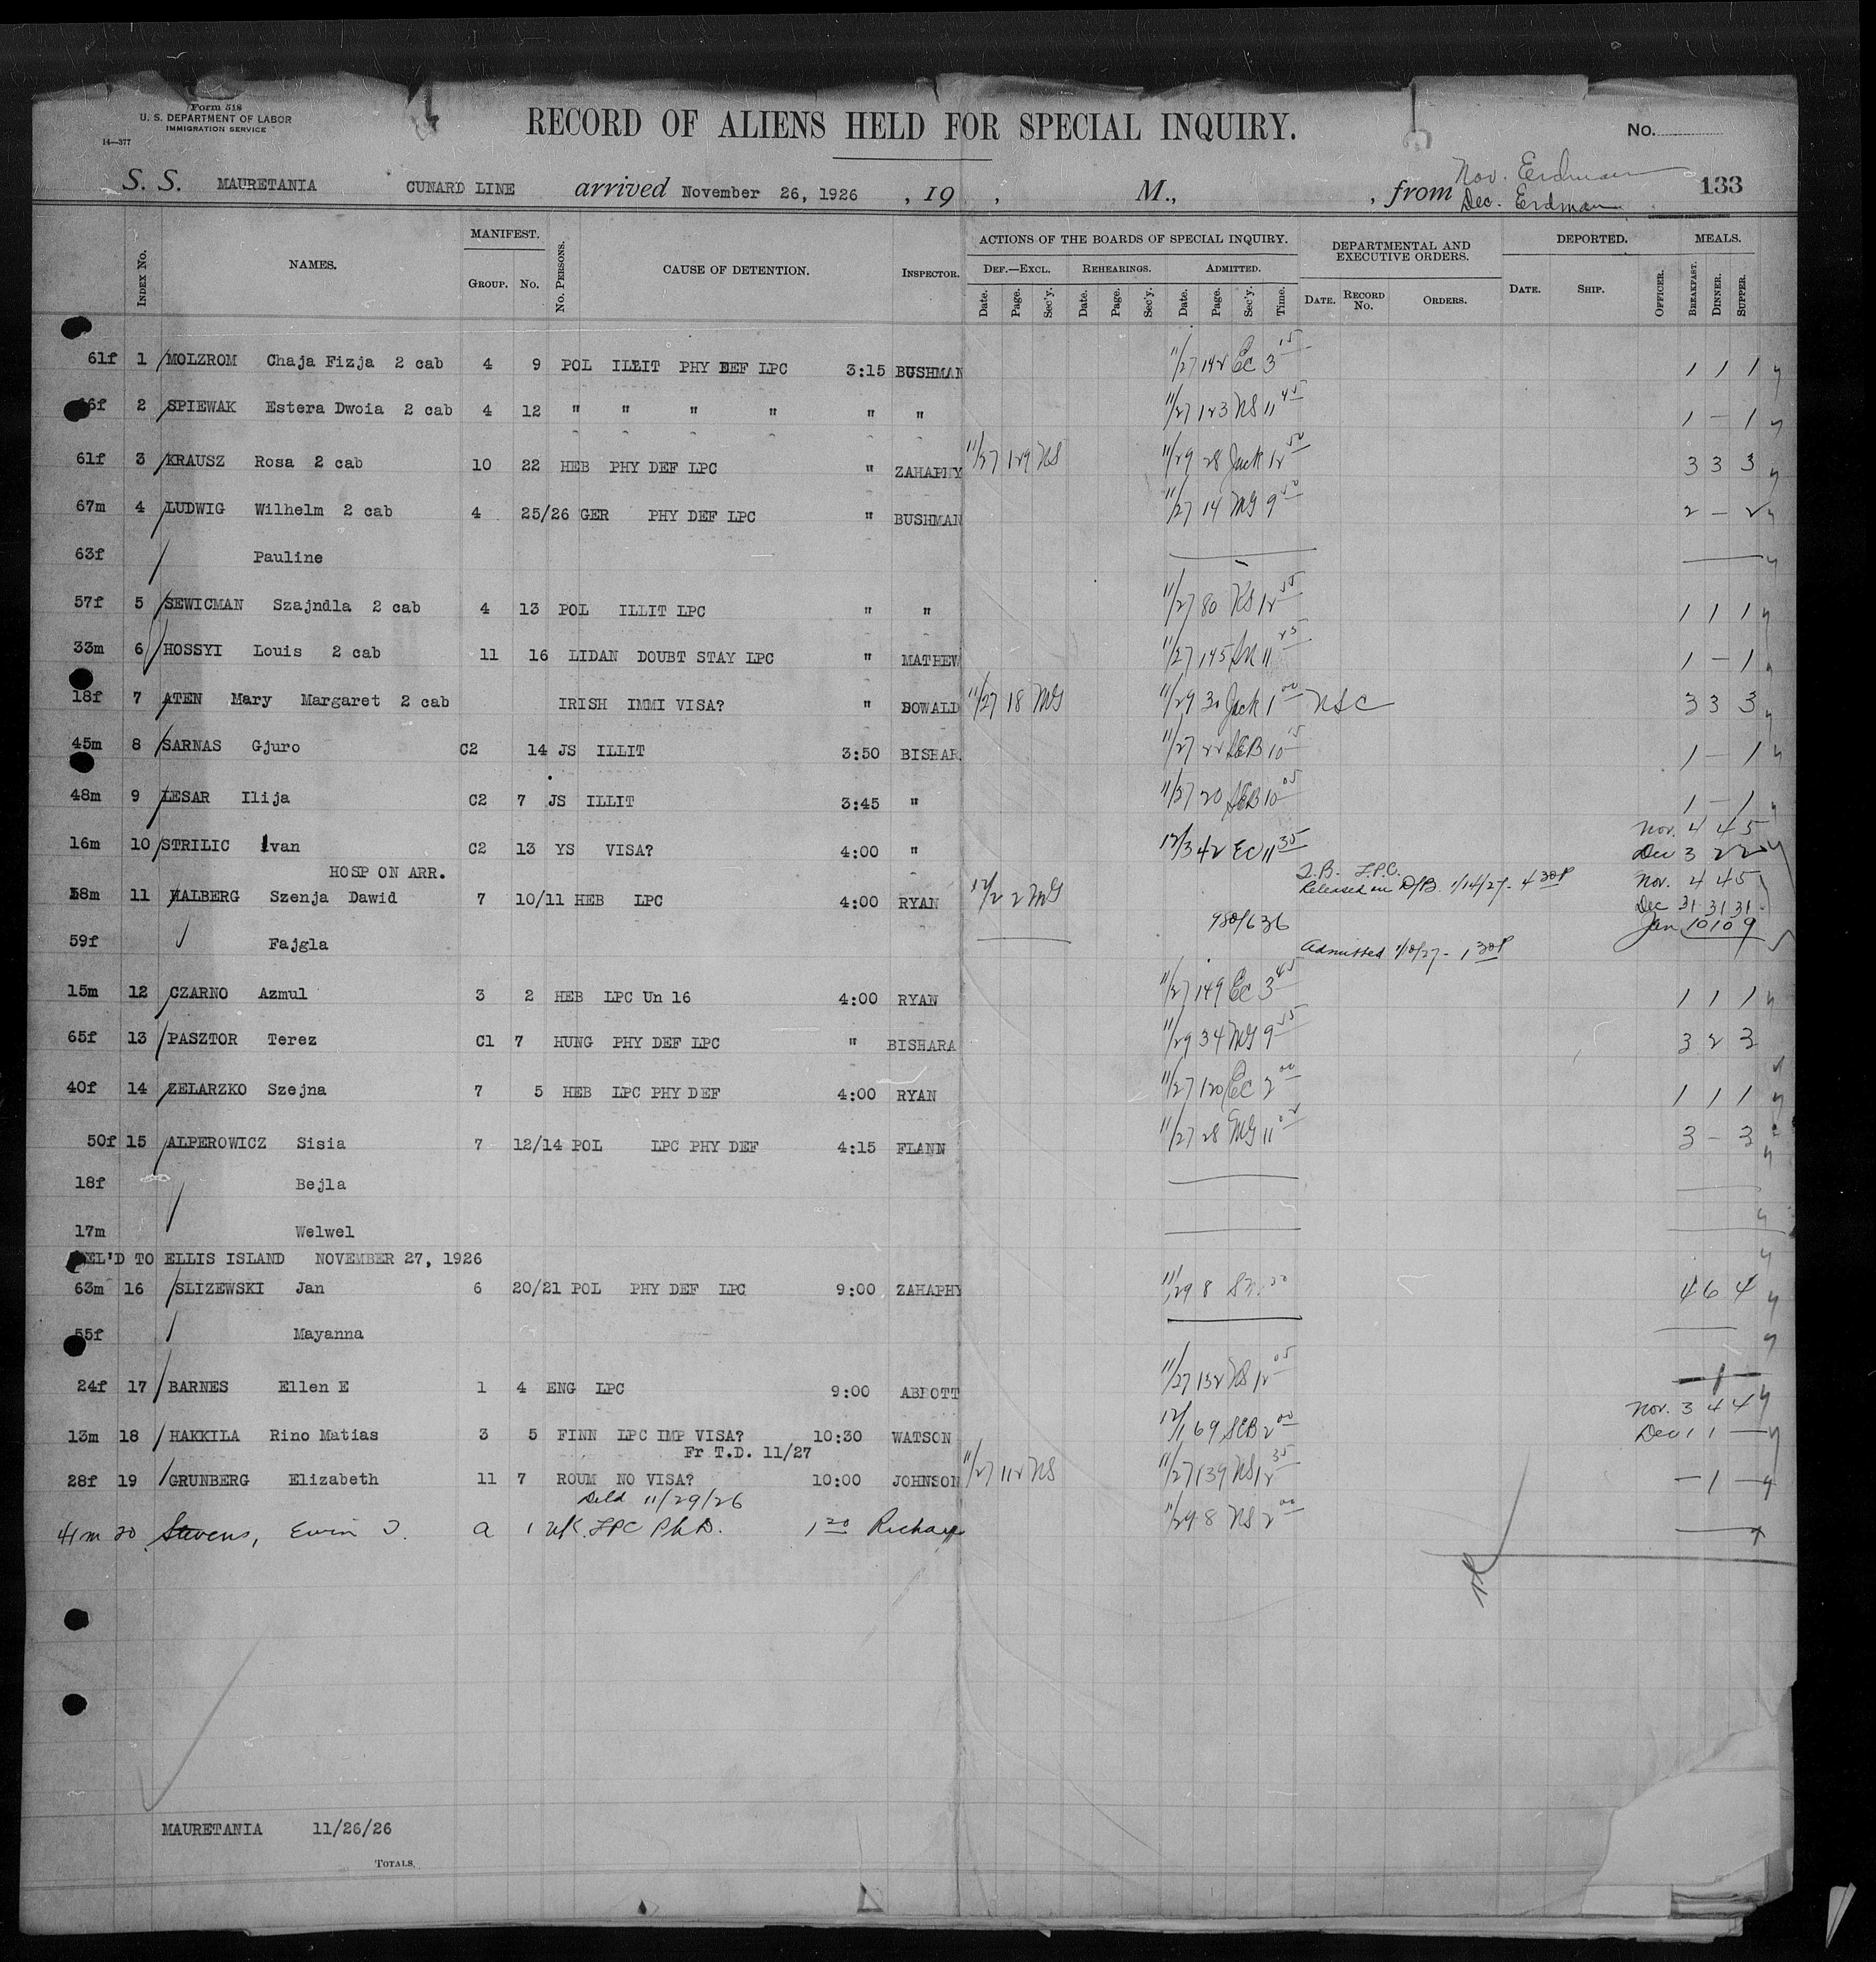 Form 518
U. S. DEPARTMENT OF LABOR
IMMIGRATION SERVICE
14—377
RECORD OF ALIENS HELD FOR SPECIAL INQUIRY.
No.
S. S. MAURETANIA CUNARD LINE arrived November 26, 1926 , 19 , M., , from Nov. Erdman
Dec. Erdman
133
INDEX No. NAMES. MANIFEST. GROUP. No. No. PERSONS. CAUSE OF DETENTION. INSPECTOR. ACTIONS OF THE BOARDS OF SPECIAL INQUIRY. DEF.—EXCL. Date. Page. Sec'y. REHEARINGS. Date. Page. Sec'y. ADMITTED. Date. Page. Sec'y. Time. DEPARTMENTAL AND EXECUTIVE ORDERS. DATE. RECORD No. ORDERS. DEPORTED. DATE. SHIP. OFFICER. MEALS. BREAKFAST. DINNER. SUPPER.
61f 1 MOLZROM Chaja Fizja 2 cab 4 9 POL ILLIT PHY DEF LPC 3:15 BUSHMAN 11/27 142 EC 3 15 1 1 1
2 SPIEWAK Estera Dwoia 2 cab 4 12 " " " " " " 11/27 123 NS 11 45 1 – 1
61f 3 KRAUSZ Rosa 2 cab 10 22 HEB PHY DEF LPC " ZAHAPHY 11/27 129 NS 11/29 28 Jack 12 50 3 3 3
67m 4 LUDWIG Wilhelm 2 cab 4 25/26 GER PHY DEF LPC " BUSHMAN 11/27 14 MG 9 2 – 2
63f Pauline
57f 5 SEWICMAN Szajndla 2 cab 4 13 POL ILLIT LPC " " 11/27 80 12 1 1 1
33m 6 HOSSYI Louis 2 cab 11 16 LIDAN DOUBT STAY LPC " MATHEW 11/27 145 11 1 – 1
18f 7 ATEN Mary Margaret 2 cab IRISH IMMI VISA? " DOWALD 11/27 18 MG 11/29 Jack 1 00 NSC 3 3 3
45m 8 SARNAS Gjuro C2 14 JS ILLIT 3:50 BISHAR 11/27 22 SEB 10 15 1 – 1
48m 9 LESAR Ilija C2 7 JS ILLIT 3:45 " 11/27 20 SEB 10 05 1 – 1
16m 10 STRILIC Ivan C2 13 YS VISA? 4:00 " 12/3 42 EC 11 35 Nov. 4 4 5
Dec 3 2 2
HOSP ON ARR. L.P.C.
58m 11 HALBERG Szenja Dawid 7 10/11 HEB LPC 4:00 RYAN 12/2 2 MG Released on 1/14/27 - 4 30P Nov. 4 4 5
Dec 31 31 31
980/636 Jan 10 10 9
59f Fajgla Admitted 1/10/27 - 1 30P
15m 12 CZARNO Azmul 3 2 HEB LPC Un 16 4:00 RYAN 11/27 149 EC 3 45 1 1 1
65f 13 PASZTOR Terez C1 7 HUNG PHY DEF LPC " BISHARA 11/29 34 MG 9 3 2 3
40f 14 ZELARZKO Szejna 7 5 HEB LPC PHY DEF 4:00 RYAN 11/27 120 EC 2 00 1 1 1
50f 15 ALPEROWICZ Sisia 7 12/14 POL LPC PHY DEF 4:15 FLANN 11/27 28 MG 11 3 – 3
18f Bejla
17m Welwel
DEL'D TO ELLIS ISLAND NOVEMBER 27, 1926
63m 16 SLIZEWSKI Jan 6 20/21 POL PHY DEF LPC 9:00 ZAHAPHY 11/29 8 4 6 4
55f Mayanna
24f 17 BARNES Ellen E 1 4 ENG LPC 9:00 ABBOTT 11/27 132 NS 12 05 – 1 –
Nov. 3 4 4
13m 18 HAKKILA Rino Matias 3 5 FINN LPC IMP VISA? 10:30 WATSON 12/1 69 SEB 2 00 Dec 1 1 –
Fr T.D. 11/27
28f 19 GRUNBERG Elizabeth 11 7 ROUM NO VISA? 10:00 JOHNSON 11/27 112 NS 11/27 139 NS 12 35 – 1 –
Deld 11/29/26
41m 20 Stevens, a 1 LPC Ph.D. 1 20 11/29 8 NS 2 00
MAURETANIA 11/26/26
TOTALS.